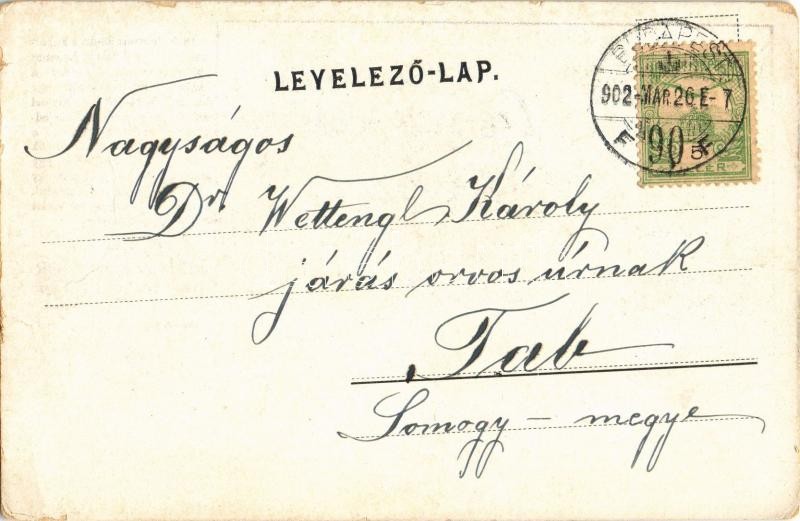 LEVELEZŐ-LAP.
BUDAPEST
902-MAR.26 E-7
90
5
Nagyságos
Dr. Wettengl Károly
járás orvos úrnak
Tab
Somogy - megye